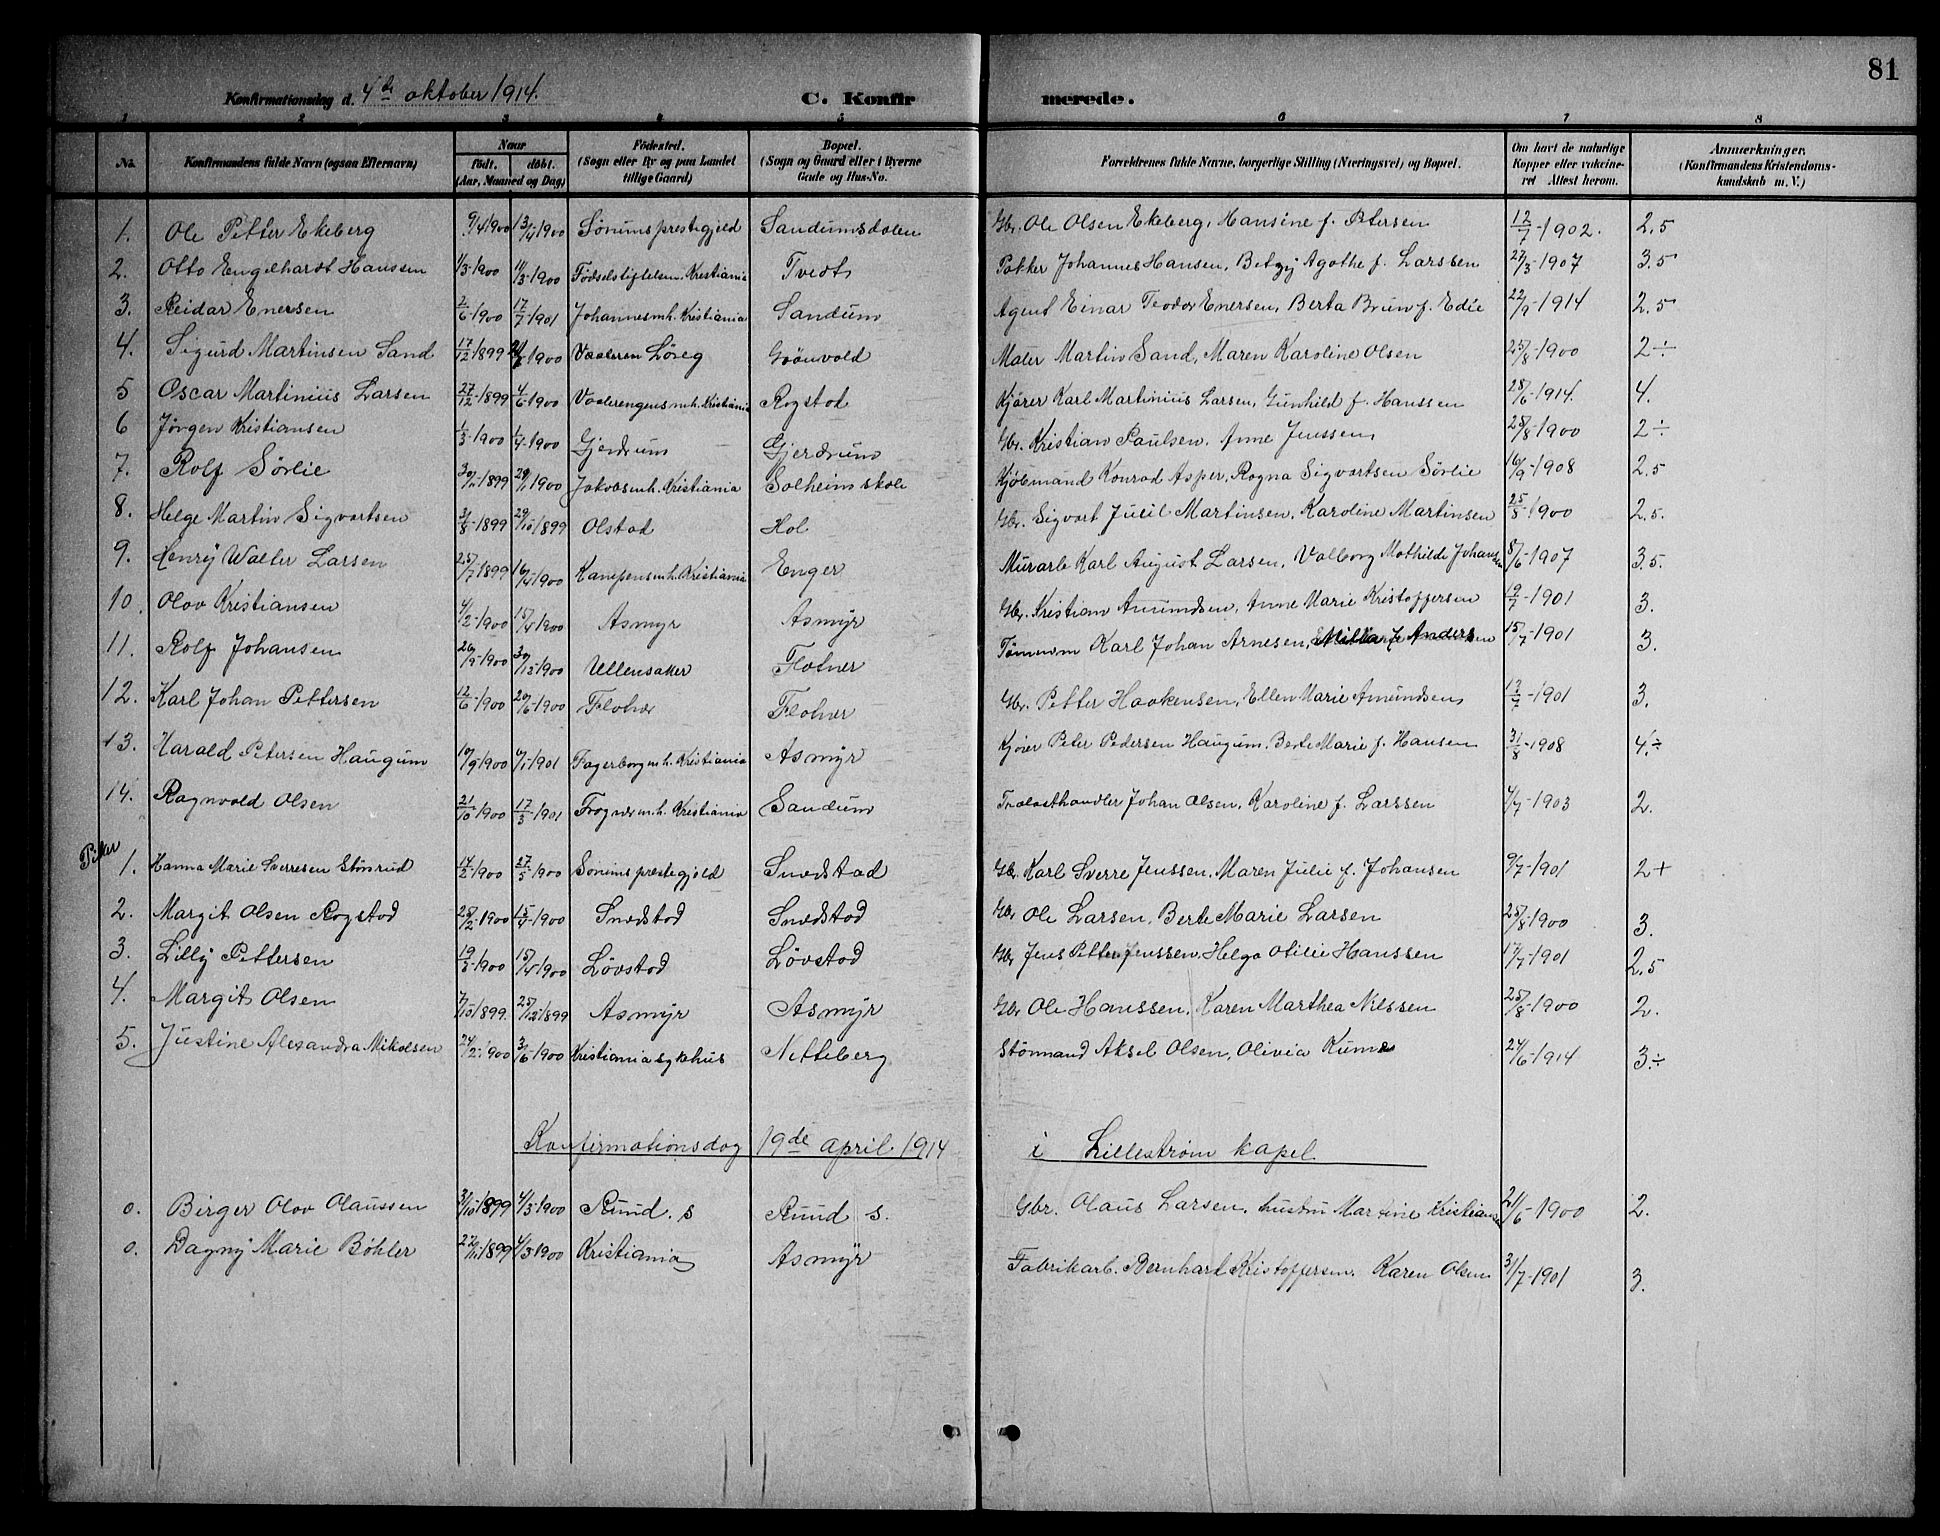 81
Konfirmationsdag d. 4de oktober 1914. C. Konfirmerede.
1 2 3 4 5 6 7 8
No. Konfirmandens fulde Navn (ogsaa Efternavn) Naar født. døbt. (Aar, Maaned og Dag) Fødested. (Sogn eller By og paa Landet tillige Gaard) Bopæl. (Sogn og Gaard eller i Byerne Gade og Hus-No. Forældrenes fulde Navne, borgerlige Stilling (Næringsvei) og Bopæl. Om havt de naturlige Kopper eller vakcineret Attest herom. Anmærkninger. (Konfirmandens Kristendomskundskab m. V.)
1. Ole Petter Ekeberg 9/4 1900 13/4 1900 Sørums prestegjeld Sandumsdalen Gbr. Ole Olsen Ekeberg, Hansine f. Petersen 12/7-1902. 2.5
2. Otto Engelhardt Hanssen 1/3-1900 11/3-1900 Fødselstiftelsen. Kristiania Tvedt Potker Johannes Hansen, Betzy Agathe f. Larssen 27/3-1907 3.5
3. Reidar Enersen 2/6-1900 17/7-1901 Johannesmh. Kristiania Sandum Agent Einar Teodor Enersen, Berta Brun f. Edie 22/9-1914 2.5
4. Sigurd Martinsen Sand 17/12-1899 -1900 Vaaleren Løreg Grønvold Maler Martin Sand, Maren Karoline Olsen 25/8-1900 2÷
5 Oscar Martinius Larsen 27/12-1899 4/6-1900 Vaalerengens mh. Kristiania Rogstad Kjører Karl Martinius Larsen, Gunhild f. Hanssen 28/6-1914. 4.
6 Jørgen Kristiansen 1/3-1900 1/4-1900 Gjerdrum Gjerdrum Gbr. Kristian Paulsen, Anne Jenssen 25/8-1900 2÷
7. Rolf Sørlie -1899 -1900 Jakobsmh. Kristiania Solheim skole Kjøbmand Konrad Asper, Ragna Sigvartsen Sørlie 16/9-1908 2.5
8. Helge Martin Sigvartsen 31/8-1899 29/10-1899 Olstad Hol Gbr. Sigvart Juul Martinsen, Karoline Martinsen 25/8-1900 2.5.
9. Henry Walter Larsen 25/7-1899 16/4-1900 Kampens mh. Kristiania Enger Murarb Karl August Larsen, Valborg Mathilde Johansen 8/6-1907 3.5.
10. Olav Kristiansen 4/2-1900 15/4-1900 Asmyr Asmyr Gbr. Kristian Amundsen, Anne Marie Kristoffersen 12/7-1901 3.
11. Rolf Johansen 26/9-1900 30/12-1900 Ullensaker Flotner Tømmerm Karl Johan Arnesen, Milla f. Andersen 15/7-1901 3.
12. Karl Johan Pettersen 12/6-1900 20/6-1900 Flotner Flotner Gbr. Petter Haakensen, Ellen Marie Amundsen 12/7-1901 3.
13. Harald Petersen Haugum 10/9-1900 6/1-1901 Fagerborg mh. Kristiania Asmyr Kjører Peter Pedersen Haugum. Berte Marie f. Hansen 31/8-1908 4÷
14. Ragnvald Olsen 21/10-1900 17/3-1901 Frogner m.h. Kristiania Sandum Trælasthandler Johan Olsen, Karoline f. Larssen 4/7-1903 2.
Piker
1. Hanna Marie Sverresen Stønrud 14/2-1900 27/5-1900 Sørums prestegjeld Snedstad Gbr. Karl Sverre Jenssen, Maren Julie f. Johansen 9/7-1901 2+
2. Margit Olsen Rogstad 25/2-1900 15/4-1900 Snedstad Snedstad Gbr Ole Larsen, Berte Marie Larsen 25/8-1900 3.
3. Lilly Pettersen 19/3-1900 15/4-1900 Løvstad Løvstad Gbr Jens Petter Jenssen, Helga Otilie Hanssen 17/7-1901 2,5
4. Margit Olsen 7/10-1899. 25/12-1899 Asmyr Asmyr Gbr Ole Hanssen, Karen Marthea Nilssen 25/8-1900 2.
5. Justine Alexandra Mikalsen 24/2-1900 3/6-1900 Kristiania sykehus Nitteberg Stønnand Aksel Olsen, Olivia 24/6-1914 3÷
Konfirmationsdag 19de april. 1914 i Lillestrøm kapel.
0. Birger Olav Olaussen 3/10-1899 4/3-1900 Ruud. s Ruud s. Gbr. Olaus Larsen, hustru Martine Kristiansen 21/6-1900 2.
0. Dagny Marie Bøhler 22/11-1899 4/3-1900 Kristiania Asmyr Fabrikarb. Bernhart Kristoffersen, Karen Olsen 31/7-1901 3.